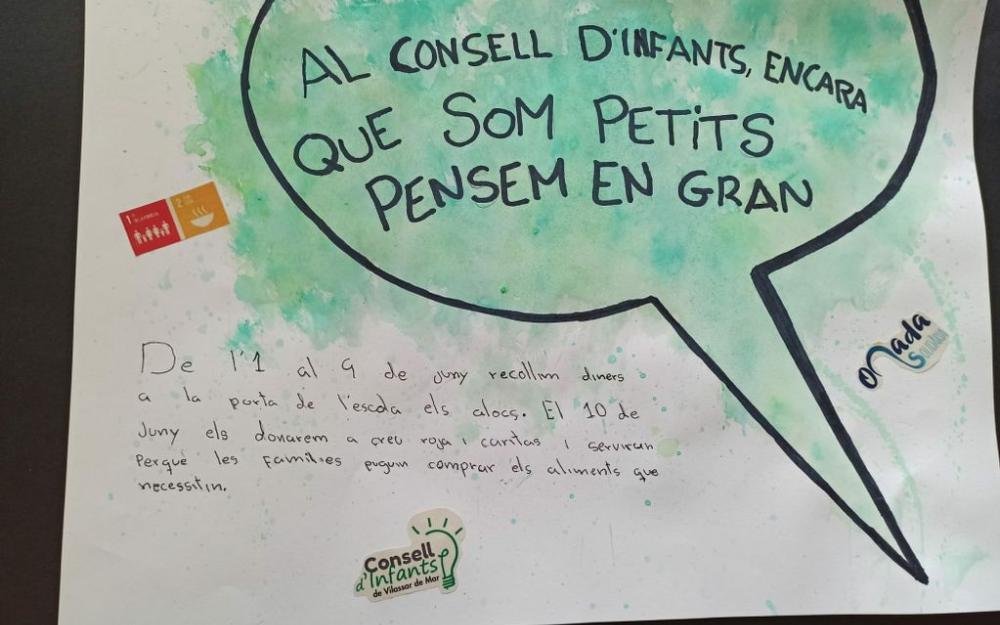 AL CONSELL D'INFANTS, ENCARA
QUE SOM PETITS
PENSEM EN GRAN
1
2
De l'1 al 9 de juny recollim diners
a la porta de l'escola els alocs. El 10 de
Juny els donarem a creu roja i caritas i serviran
Perquè les famílies puguin comprar els aliments que
necessitin.
onada
Consell
d'Infants
de Vilassar de Mar